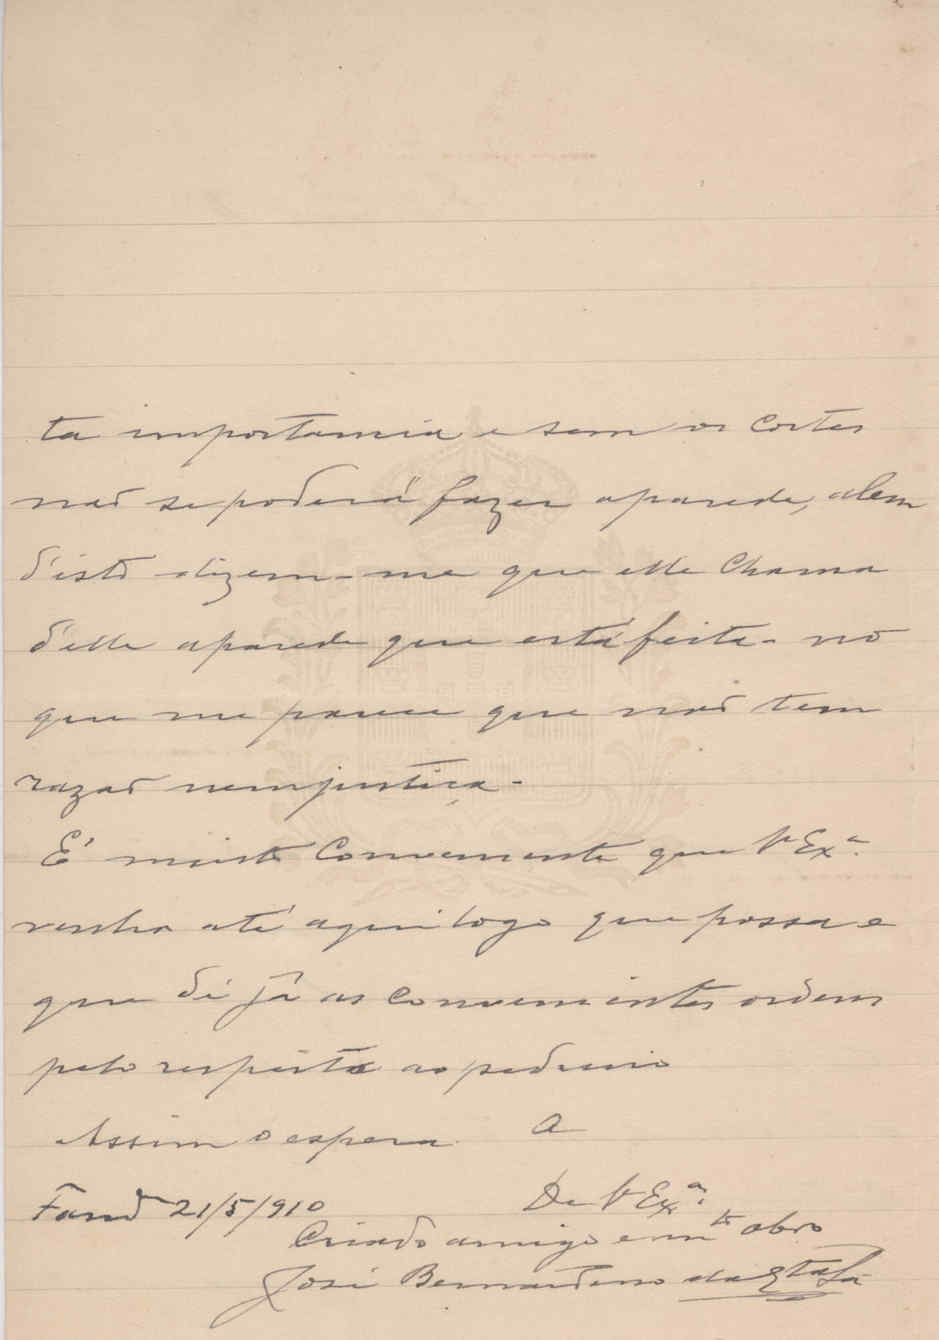 ta importancia e sem os cortes
não se poderá fazer aparede, alem
d'isto dizem-me que elle chama
d'elle aparede que está feita - no
que me parece que não tem
razão nem justiça -
É muito conveniente que V Exª.
venha até aqui logo que possa e
que dê já as convenientes ordens
pelo respeita ao pedreiro
Assim o espera
De V Exª.
Fand 21/5/910
Criado amigo e mto obro
José Bernardino da